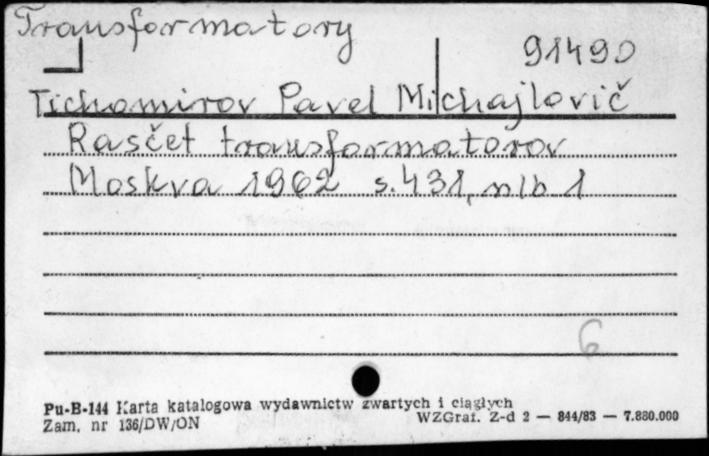 Transformatory
91490
Tichomirov Pavel Michajlovič
Rasčet transformatorov
Moskva 1962 s.431, nlb 1
6
Pu-B-144 Karta katalogowa wydawnictw zwartych i ciągłych
Zam. nr 136/DW/ON
WZGraf. Z-d 2 — 844/83 — 7.880.000